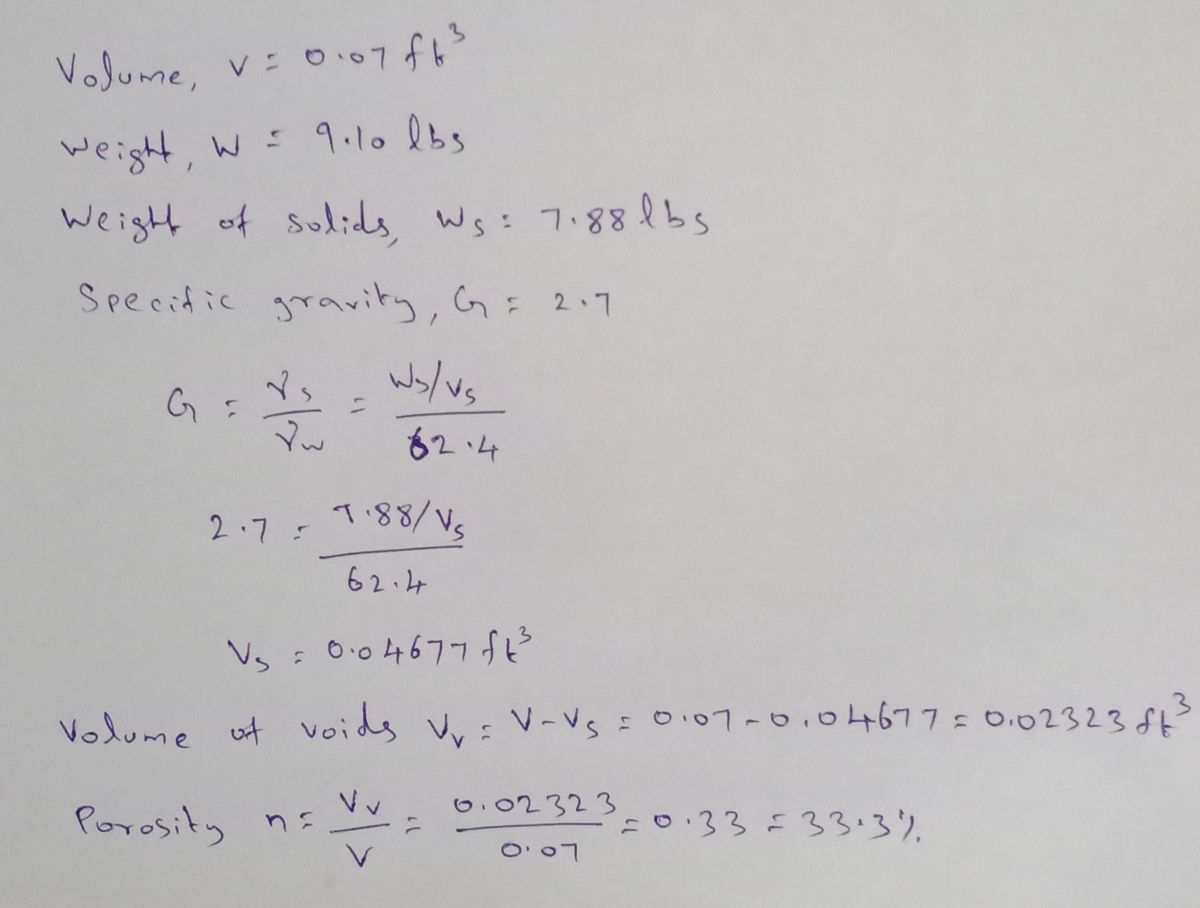 Volume, V = 0.07 ft³
Weight, W = 9.10 lbs
Weight of solids, Ws = 7.88 lbs
Specific gravity, G = 2.7
G = γs/γw = (Ws/Vs)/62.4
2.7 = (7.88/Vs)/62.4
Vs = 0.04677 ft³
Volume of voids Vv = V-Vs = 0.07-0.04677 = 0.02323 ft³
Porosity n = Vv/V = 0.02323/0.07 = 0.33 = 33.3%